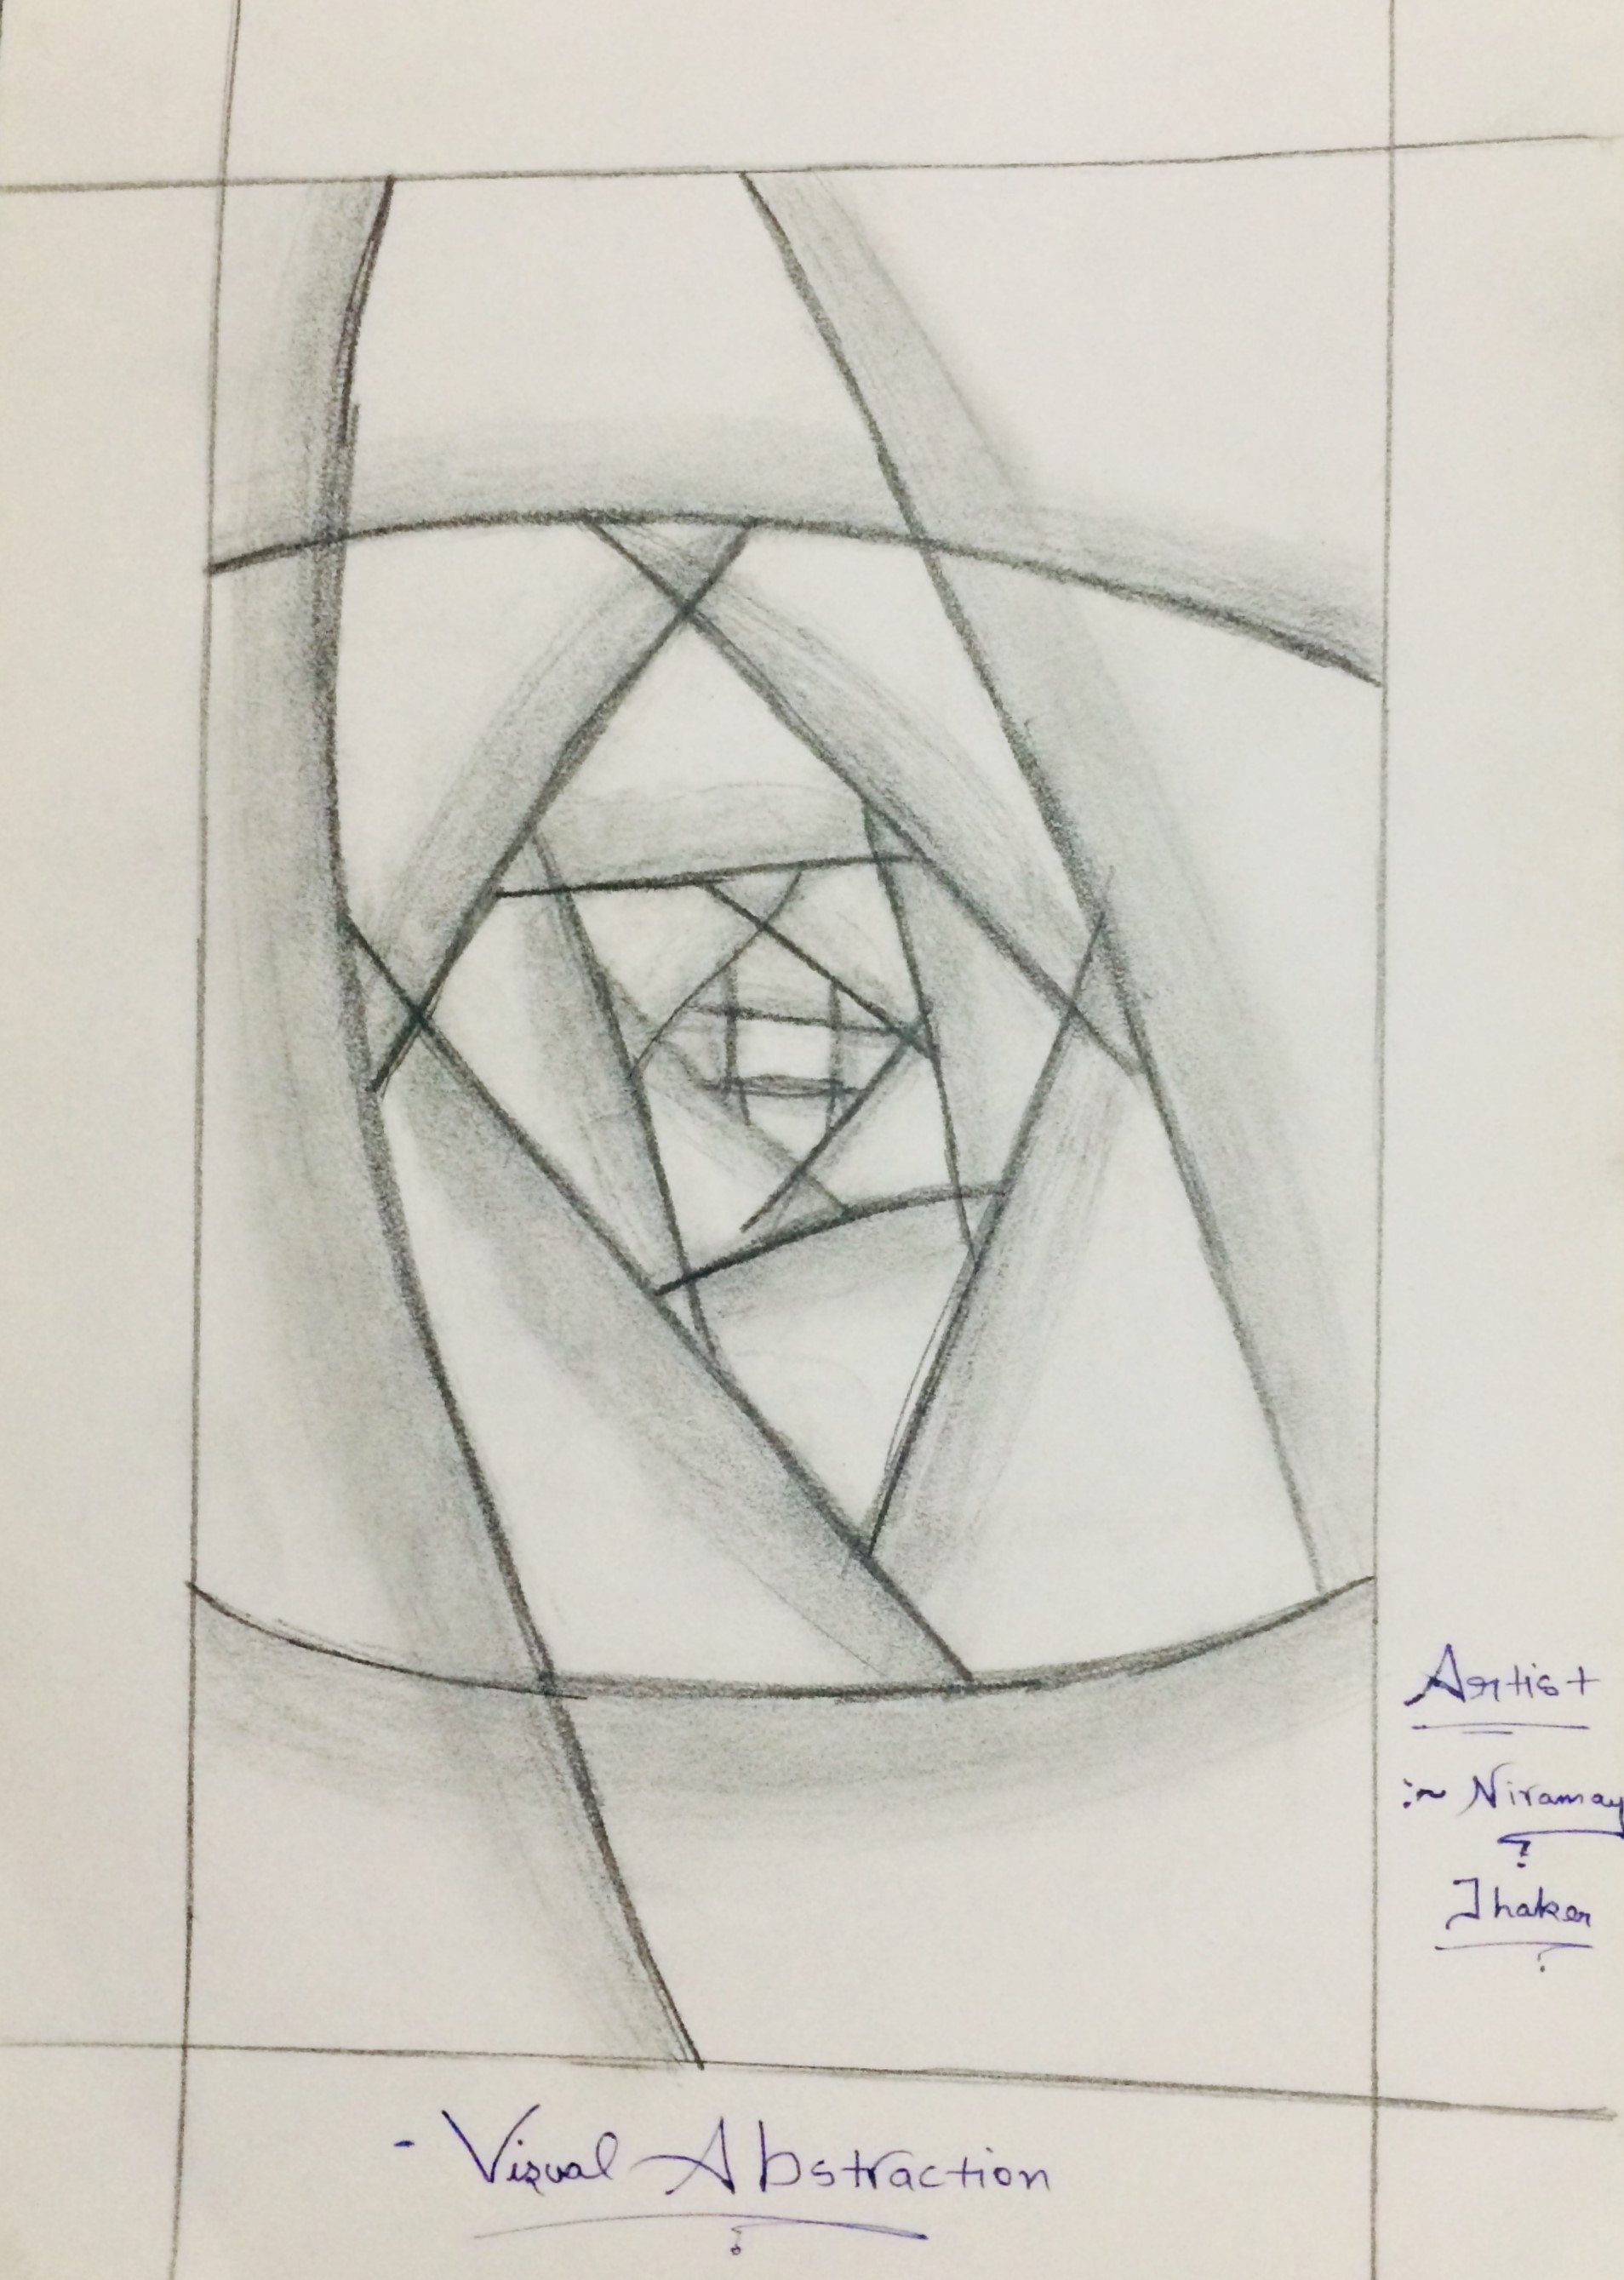 Artist
:~ Niramay
Thaker
- Visual Abstraction